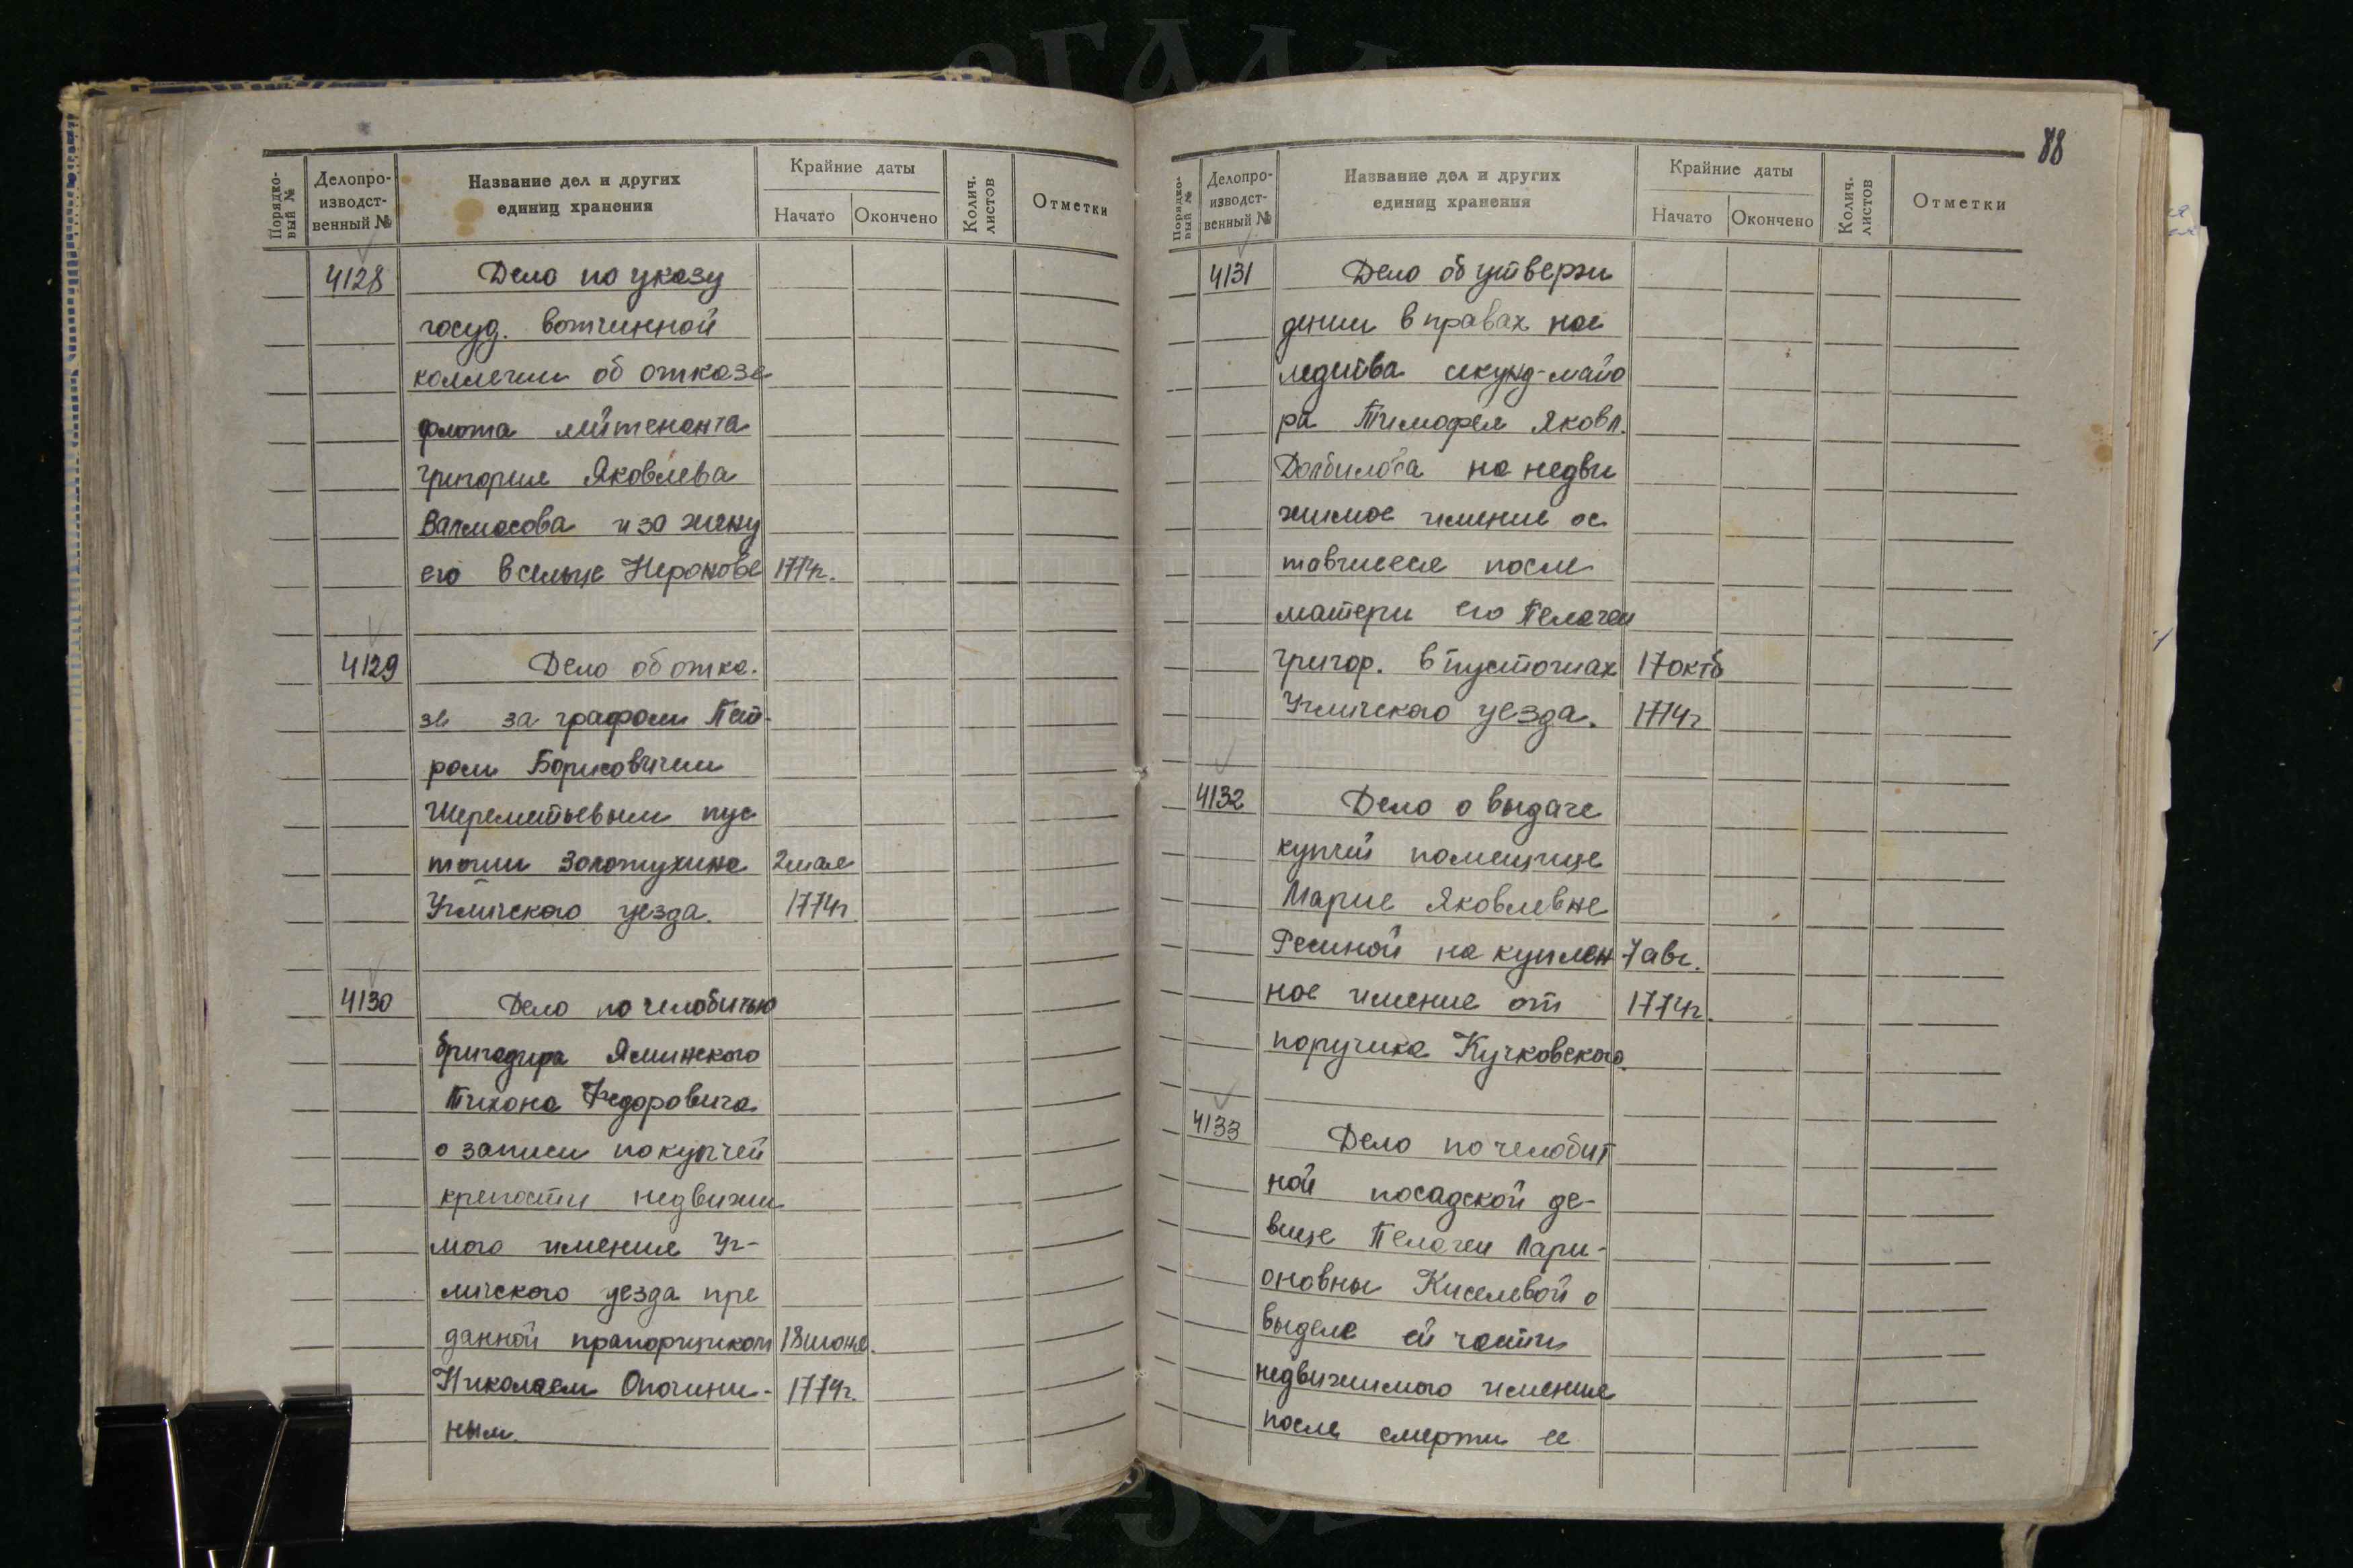 Порядко-
вый №
Делопро-
изводст-
венный №
Название дел и других
единиц хранения
Крайние даты
Начато
Окончено
Колич.
листов
Отметки
4128 Дело по указу
госуд. вотчинной
коллегии об отказе
флота лейтенанта
Григория Яковлева
Валмасова и за жену
его в сельце Неронове 1774г.
4129 Дело об отка-
зе за графом Пет-
ром Борисовичем
Шереметьевым пус
тоши Золотухина 2 мая
Угличского уезда. 1774г
4130 Дело по челобитью
бригадира Яминского
Тихона Федоровича
о записи по купчей
крепости недвижи
мого имения Уг-
личского уезда пре
данной прапорщиком 18 июня.
Николаем Опочини- 1774г.
ным.
88
Порядко-
вый №
Делопро-
изводст-
венный №
Название дел и других
единиц хранения
Крайние даты
Начато
Окончено
Колич.
листов
Отметки
4131 Дело об утверж
дении в правах нас
ледства секунд-майо
ра Тимофея Яковл.
Долбилова на недви
жимое имение ос
тавшееся после
матери его Пелагеи
Григор. в пустошах 17 октб
Угличского уезда. 1774г
4132 Дело о выдаче
купчей помещице
Марие Яковлевне
на куплен 7 авг.
ное имение от 1774г.
поручика Кучковского.
4133 Дело по челобит
ной посадской де-
вице Пелагеи Лари-
оновны Киселевой о
выделе ей части
недвижимого имения
после смерти ее